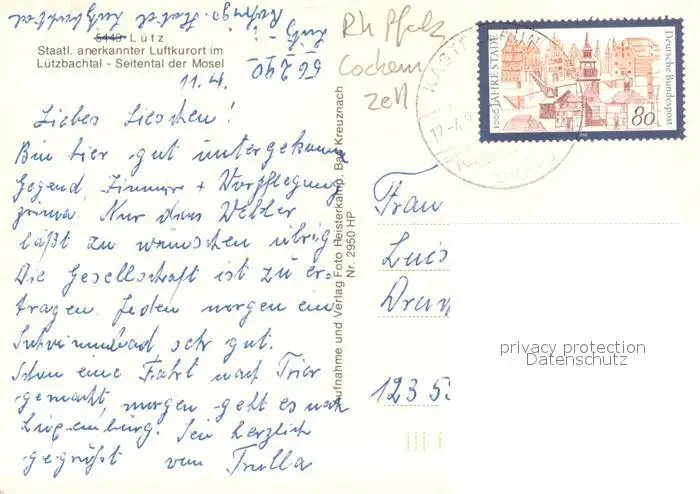 5449 Lütz
Staatl. anerkannter Luftkurort im
Lützbachtal - Seitental der Mosel
56290
11.4.
Rh Pfalz
Cochem
Zell
1000 JAHRE STADE
Deutsche Bundespost
80
Liebes Lieschen!
Bin hier gut untergekommen
Gegend, Zimmer + Verpflegung
prima. Nur das Wetter
läßt zu wünschen übrig
Die Gesellschaft ist zu er-
tragen. Jeden morgen ein
Schwimmbad, sehr gut.
Schon eine Fahrt nach Trier
gemacht, morgen geht es nach
Luxemburg. Sei herzlich
gegrüßt von Trulla
Aufnahme und Verlag Foto Heisterkamp, Bad Kreuznach
Nr. 2950 HP
Frau
Luis
123 55
privacy protection
Datenschutz